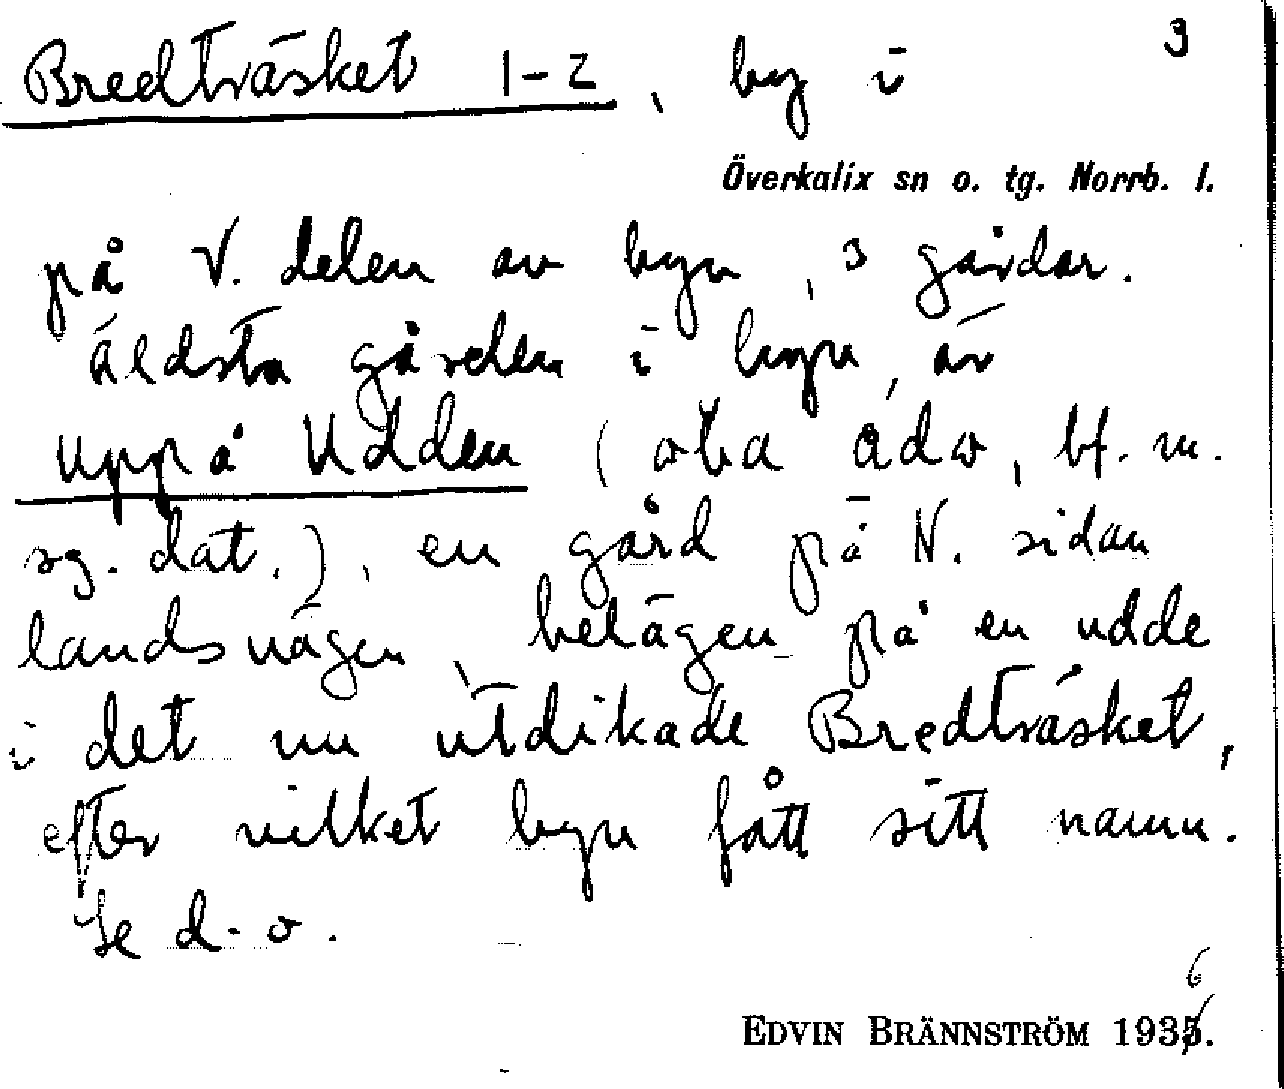 3
Bredträsket 1-2, by i
Överkalix sn o. tg. Norrb. l.
på V. delen av byn, 3 gårdar.
Äldsta gården i byn, är
Uppå Udden (oba ådω, bf. m.
sg. dat.), en gård på N. sidan
landsvägen, belägen på en udde
i det nu utdikade Bredträsket,
efter vilket byn fått sitt namn.
Se d. o.
6
EDVIN BRÄNNSTRÖM 1935.